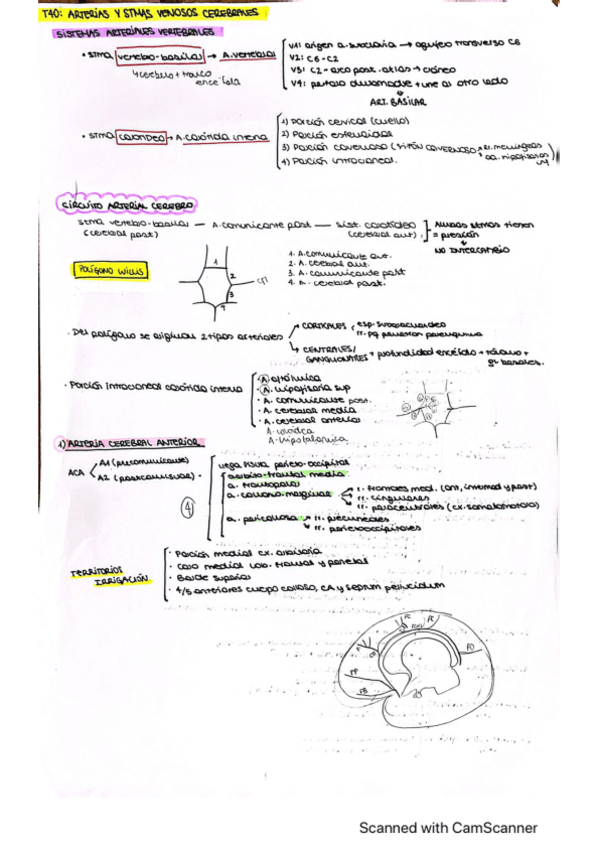 T40: ARTERIAS Y STMAS VENOSOS CEREBRALES
SISTEMAS ARTERIALES VERTEBRALES
• STMA vertebro-basilar → A. vertebral
4 cerebro + tronco encefala
V1: origen a. subclavia → agujero transverso C6
V2: C6-C2
V3: C2 - arco post. atlas → cráneo
V4: perfora duramadre + une al otro lado
ART. BASILAR
• STMA CAROTÍDEO → A. carótida interna
1) Porción cervical (cuello)
2) Porción petrosa
3) Porción cavernosa (SIFÓN CAVERNOSO) rr. meníngeas
aa. hipofisarias
4) Porción intracraneal.
CIRCUITO ARTERIAL CEREBRO
STMA vertebro-basilar — A. comunicante post — Sist. carotídeo
(cerebral post) (cerebral ant)
Ambos stmas tienen
= presión
NO INTERCAMBIO
POLÍGONO WILLIS
1
2
3
4
1. A. comunicante ant.
2. A. cerebral ant.
3. A. comunicante post
4. A. cerebral post.
• Del polígono se originan 2 tipos arteriales
CORTICALES
esp. subaracnoideo
rr. pq penetran parénquima
CENTRALES/
GANGLIONARES
profundidad encéfalo + tálamo +
gl. basales.
• Porción intracraneal carótida interna
• A. oftálmica
• A. hipofisaria sup
• A. comunicante post.
• A. cerebral media
• A. cerebral anterior
A. coroidea
A. hipotalámica
1) ARTERIA CEREBRAL ANTERIOR
ACA
A1 (precomunicante)
A2 (postcomunicante)
4
llega fisura parieto-occipital
a. frontopolar
a. calloso-marginal
r. frontales med. (ant, intermed y post)
rr. cingulares
rr. paracentrales (cx. somatomotora)
a. pericallosa
rr. precuneales
rr. parietooccipitales
TERRITORIOS
IRRIGACIÓN
• Porción medial cx. orbitaria
• Cara medial lob. frontal y parietal
• Borde superior
• 4/5 anteriores cuerpo calloso, CA y septum pellucidum
PC
PO
FP
Scanned with CamScanner